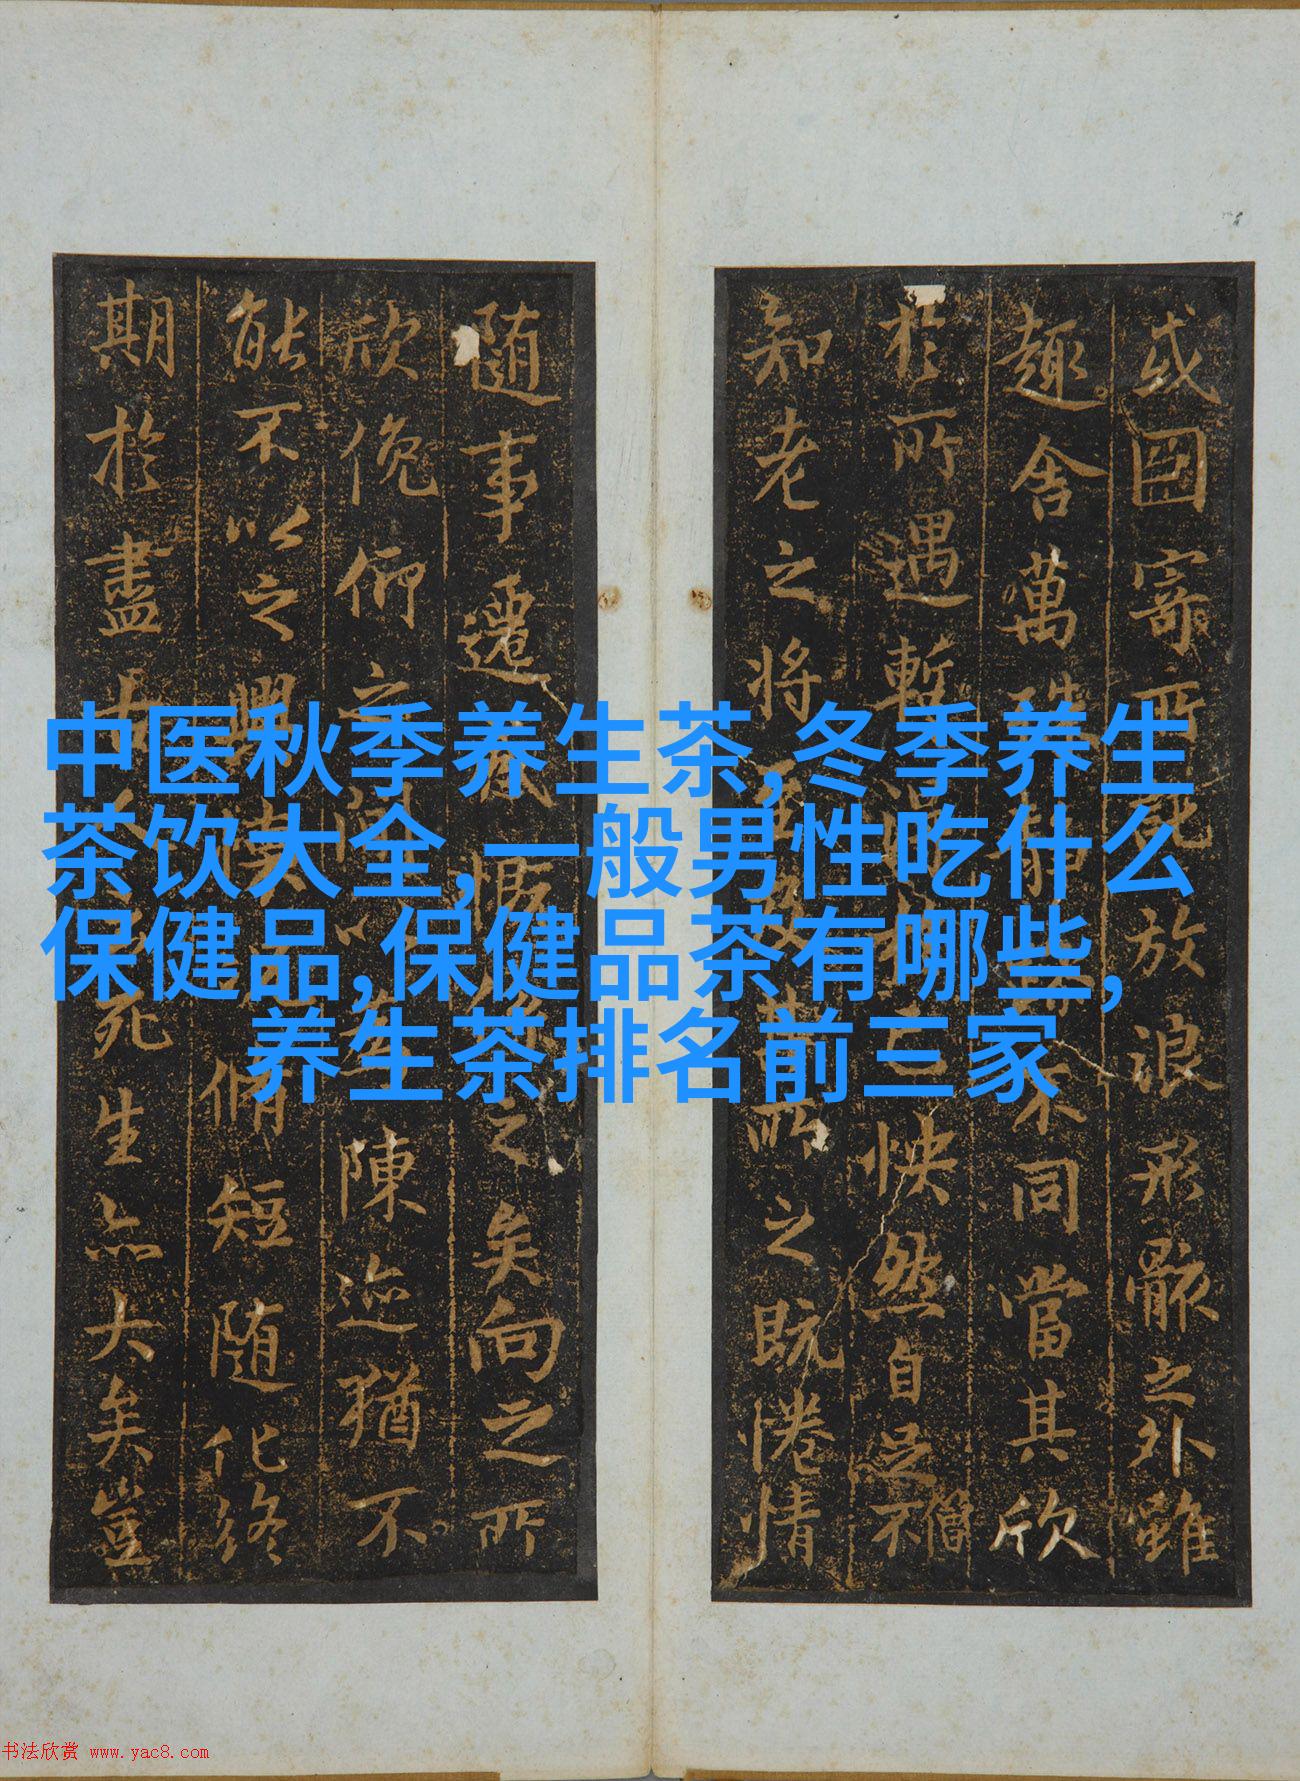 中医秋季养生茶,冬季养生
茶饮大全,一般男性吃什么
保健品,保健品茶有哪些,
养生茶排名前三家
或因寄所放浪形骸之外雖
趣舍萬殊静不同當其欣
於所遇暫快然自足不僧
知老之將至所之既惓情
隨事遷感慨之矣向之所
欣俛仰之間以陳迹猶不
能不以之興脩短隨化終
期於盡古死生亦大矣豈
书法欣赏 www.yac8.com